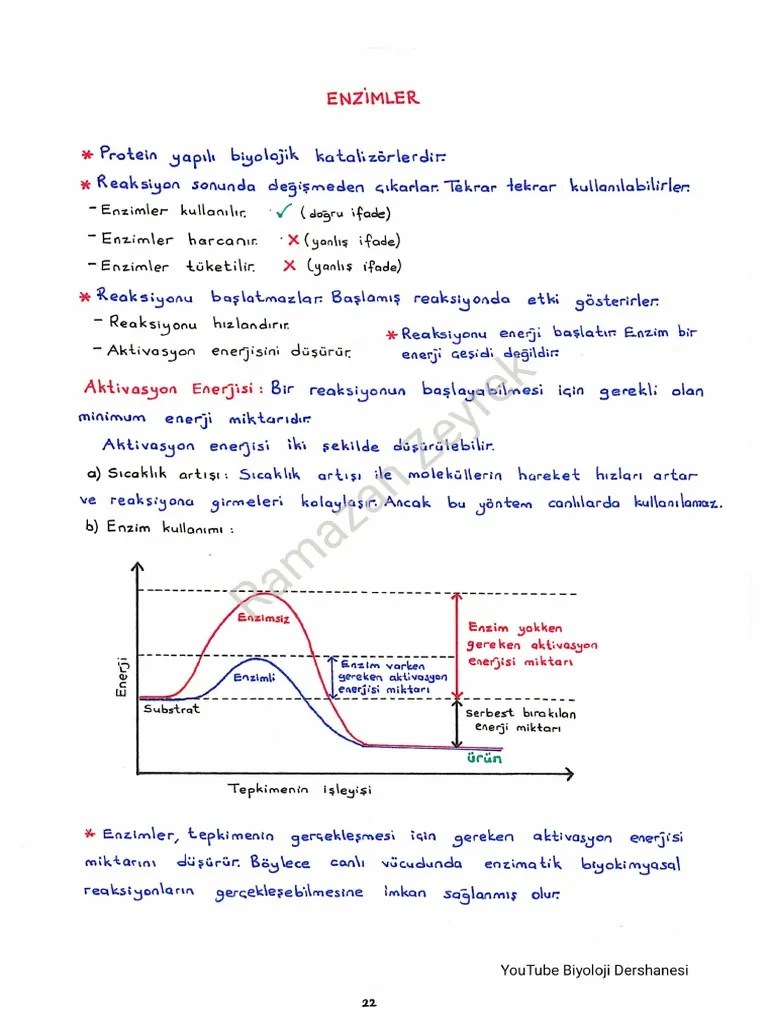 ENZİMLER
* Protein yapılı biyolojik katalizörlerdir.
* Reaksiyon sonunda değişmeden çıkarlar. Tekrar tekrar kullanılabilirler.
- Enzimler kullanılır. ✓ (doğru ifade)
- Enzimler harcanır. X (yanlış ifade)
- Enzimler tüketilir. X (yanlış ifade)
* Reaksiyonu başlatmazlar. Başlamış reaksiyonda etki gösterirler.
- Reaksiyonu hızlandırır.
- Aktivasyon enerjisini düşürür.
* Reaksiyonu enerji başlatır. Enzim bir
enerji çeşidi değildir.
Aktivasyon Enerjisi : Bir reaksiyonun başlayabilmesi için gerekli olan
minimum enerji miktarıdır.
Aktivasyon enerjisi iki şekilde düşürülebilir.
a) Sıcaklık artışı : Sıcaklık artışı ile moleküllerin hareket hızları artar
ve reaksiyona girmeleri kolaylaşır. Ancak bu yöntem canlılarda kullanılamaz.
b) Enzim kullanımı :
Enerji
Enzimsiz
Enzimli
Substrat
Enzim varken
gereken aktivasyon
enerjisi miktarı
Enzim yokken
gereken aktivasyon
enerjisi miktarı
Serbest bırakılan
enerji miktarı
ürün
Tepkimenin işleyişi
* Enzimler, tepkimenin gerçekleşmesi için gereken aktivasyon enerjisi
miktarını düşürür. Böylece canlı vücudunda enzimatik biyokimyasal
reaksiyonların gerçekleşebilmesine imkan sağlanmış olur.
Ramazan Zeyrek
YouTube Biyoloji Dershanesi
22